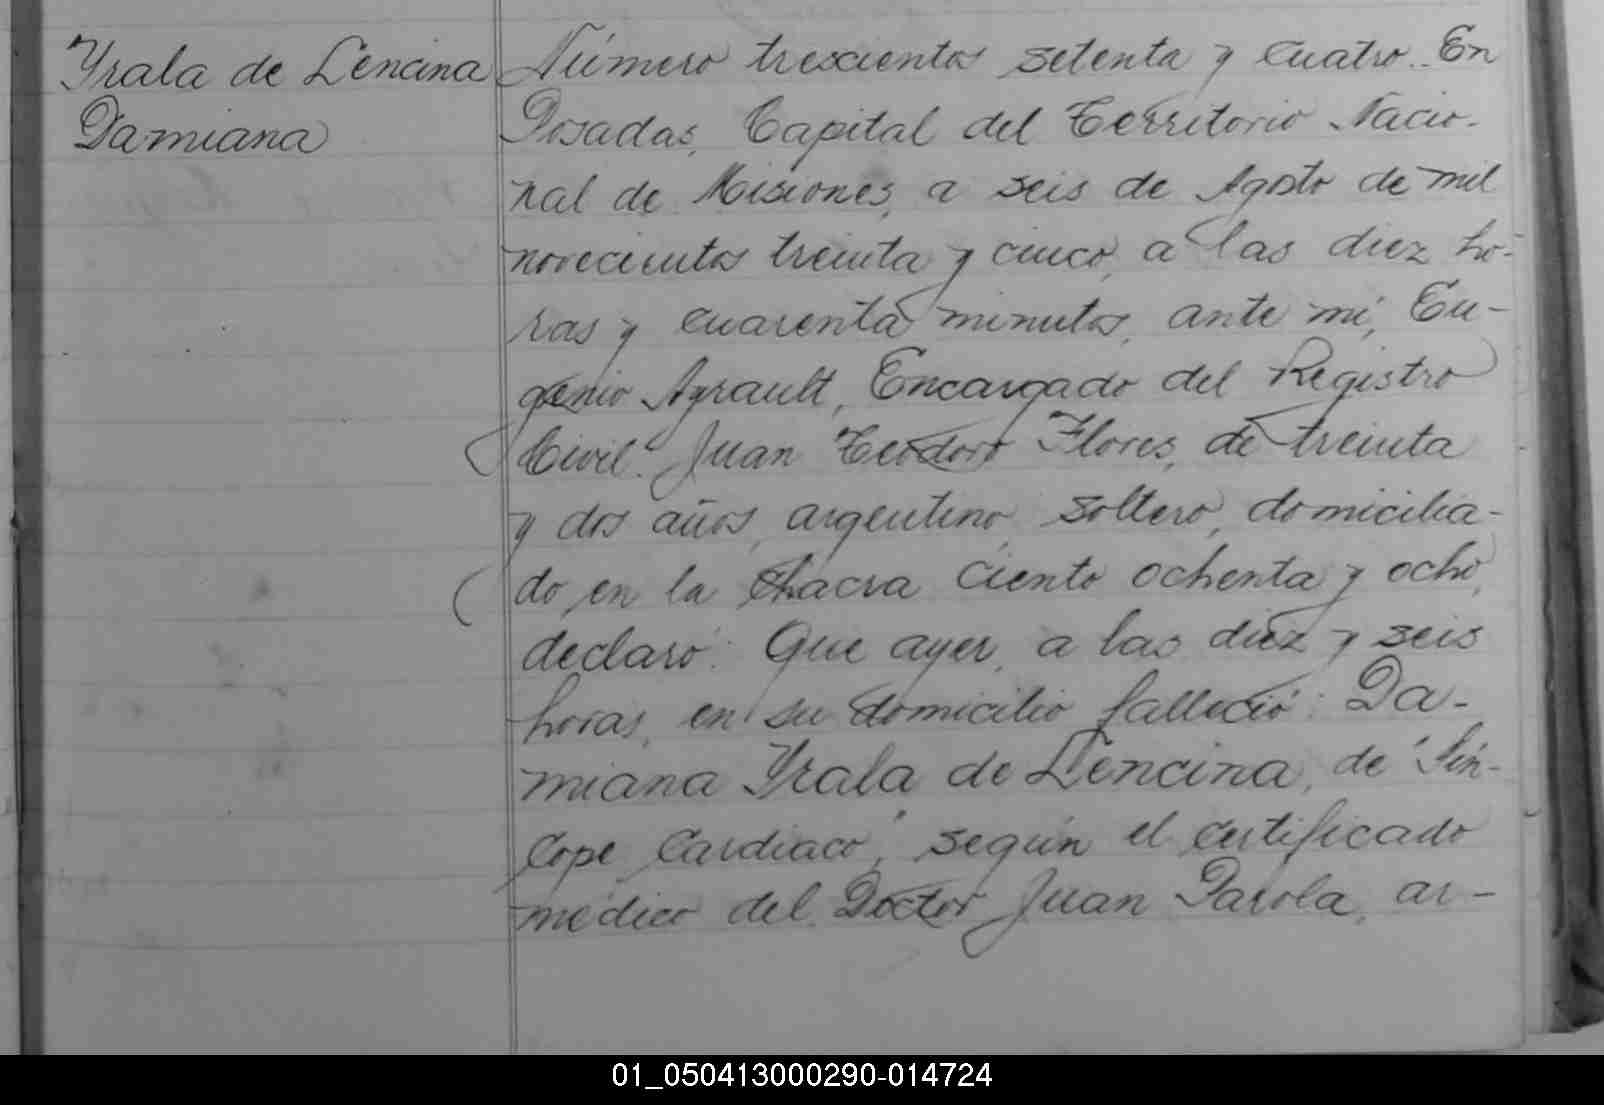 Yrala de Lencina
Damiana
Número trescientos setenta y cuatro. En
Posadas, Capital del Territorio Nacio-
nal de Misiones, a seis de Agosto de mil
novecientos treinta y cinco, a las diez ho-
ras y cuarenta minutos, ante mí, Eu-
genio Ayrault, Encargado del Registro
Civil. Juan Teodoro Flores, de treinta
y dos años, argentino, soltero, domicilia-
do en la chacra ciento ochenta y ocho,
declaró: Que ayer, a las diez y seis
horas, en su domicilio falleció: Da-
miana Yrala de Lencina, de "Sín-
cope Cardiaco", según el certificado
médico del Doctor Juan Parola, ar-
01_050413000290-014724